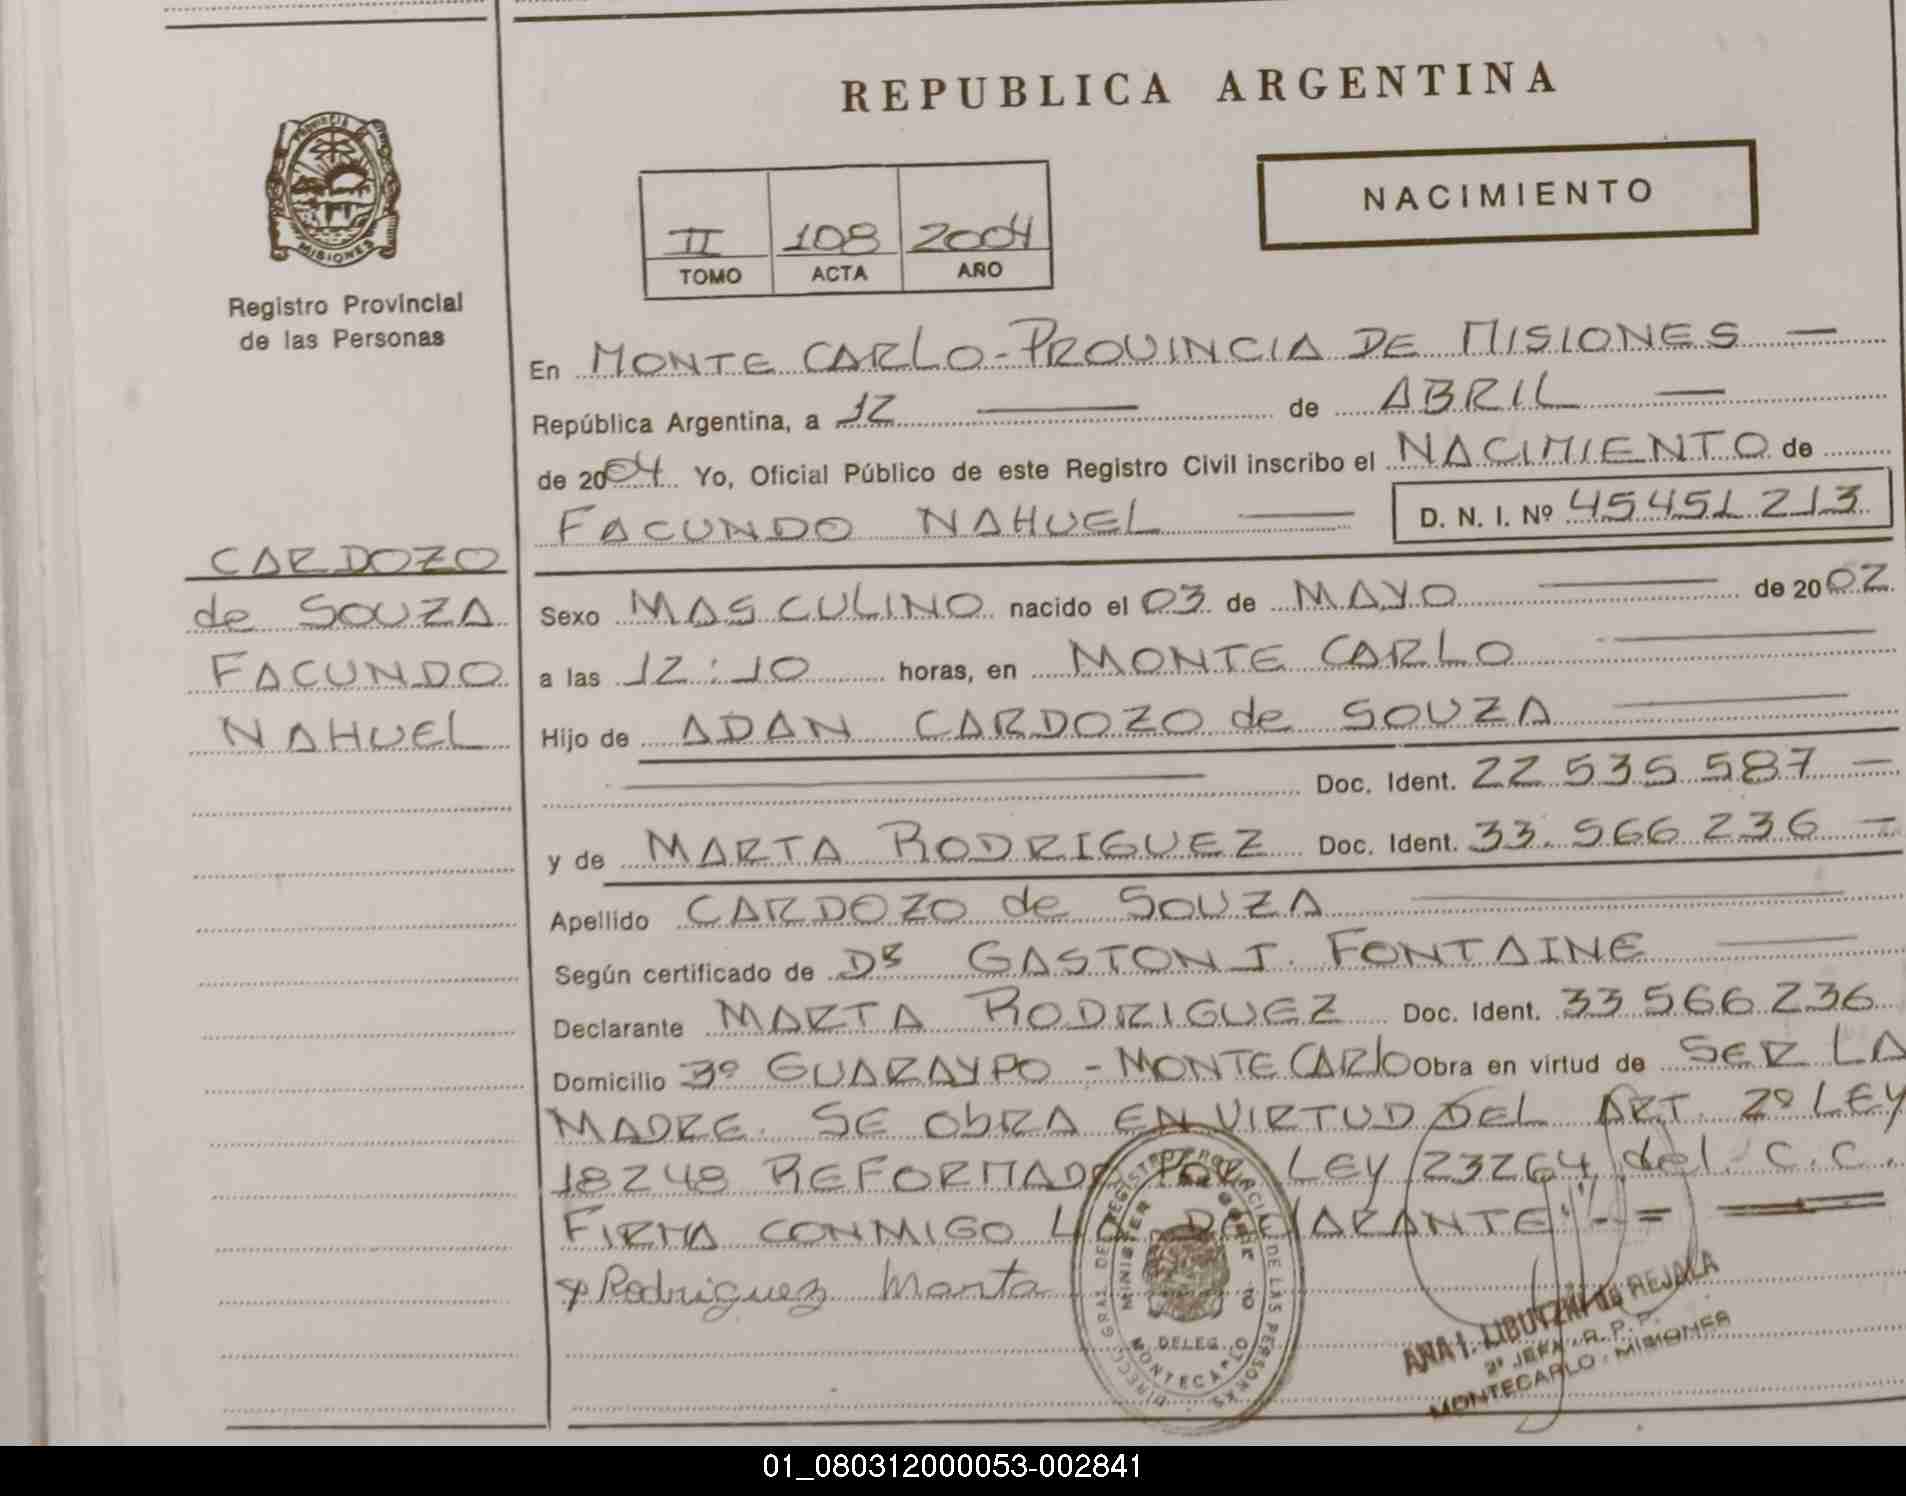 REPUBLICA ARGENTINA
PROVINCIA
MISIONES
Registro Provincial
de las Personas
NACIMIENTO
II 108 2004
TOMO ACTA AÑO
En MONTE CARLO - PROVINCIA DE MISIONES —
República Argentina, a 12 — de ABRIL —
de 2004 Yo, Oficial Público de este Registro Civil inscribo el NACIMIENTO de
FACUNDO NAHUEL — D. N. I. Nº 45451213
CARDOZO
de SOUZA
FACUNDO
NAHUEL
Sexo MASCULINO nacido el 03 de MAYO — de 2002
a las 12:10 horas, en MONTE CARLO —
Hijo de ADAN CARDOZO de SOUZA —
— Doc. Ident. 22 535 587 —
y de MARTA RODRIGUEZ Doc. Ident. 33.566 236 —
Apellido CARDOZO de SOUZA —
Según certificado de DR GASTON J. FONTAINE —
Declarante MARTA RODRIGUEZ Doc. Ident. 33 566 236
Domicilio 3º GUARAYPO - MONTE CARlO Obra en virtud de SER LA
MADRE. SE ObRA EN VIRTUD DEL ART. 2º LEY
18248 REFORMADO POR LEY 23264 del C.C.
FIRMA CONMIGO LA DEClARANTE.- - = =
x Rodriguez Marta
DIRECC. GRAL. DEL REGISTRO PROVINCIAL DE LAS PERSONAS
DELEG.
MONTECARLO
ANA I. LIBUTZKI de REJALA
2ª JEFA - R. P. P.
MONTECARLO - MISIONES
01_080312000053-002841